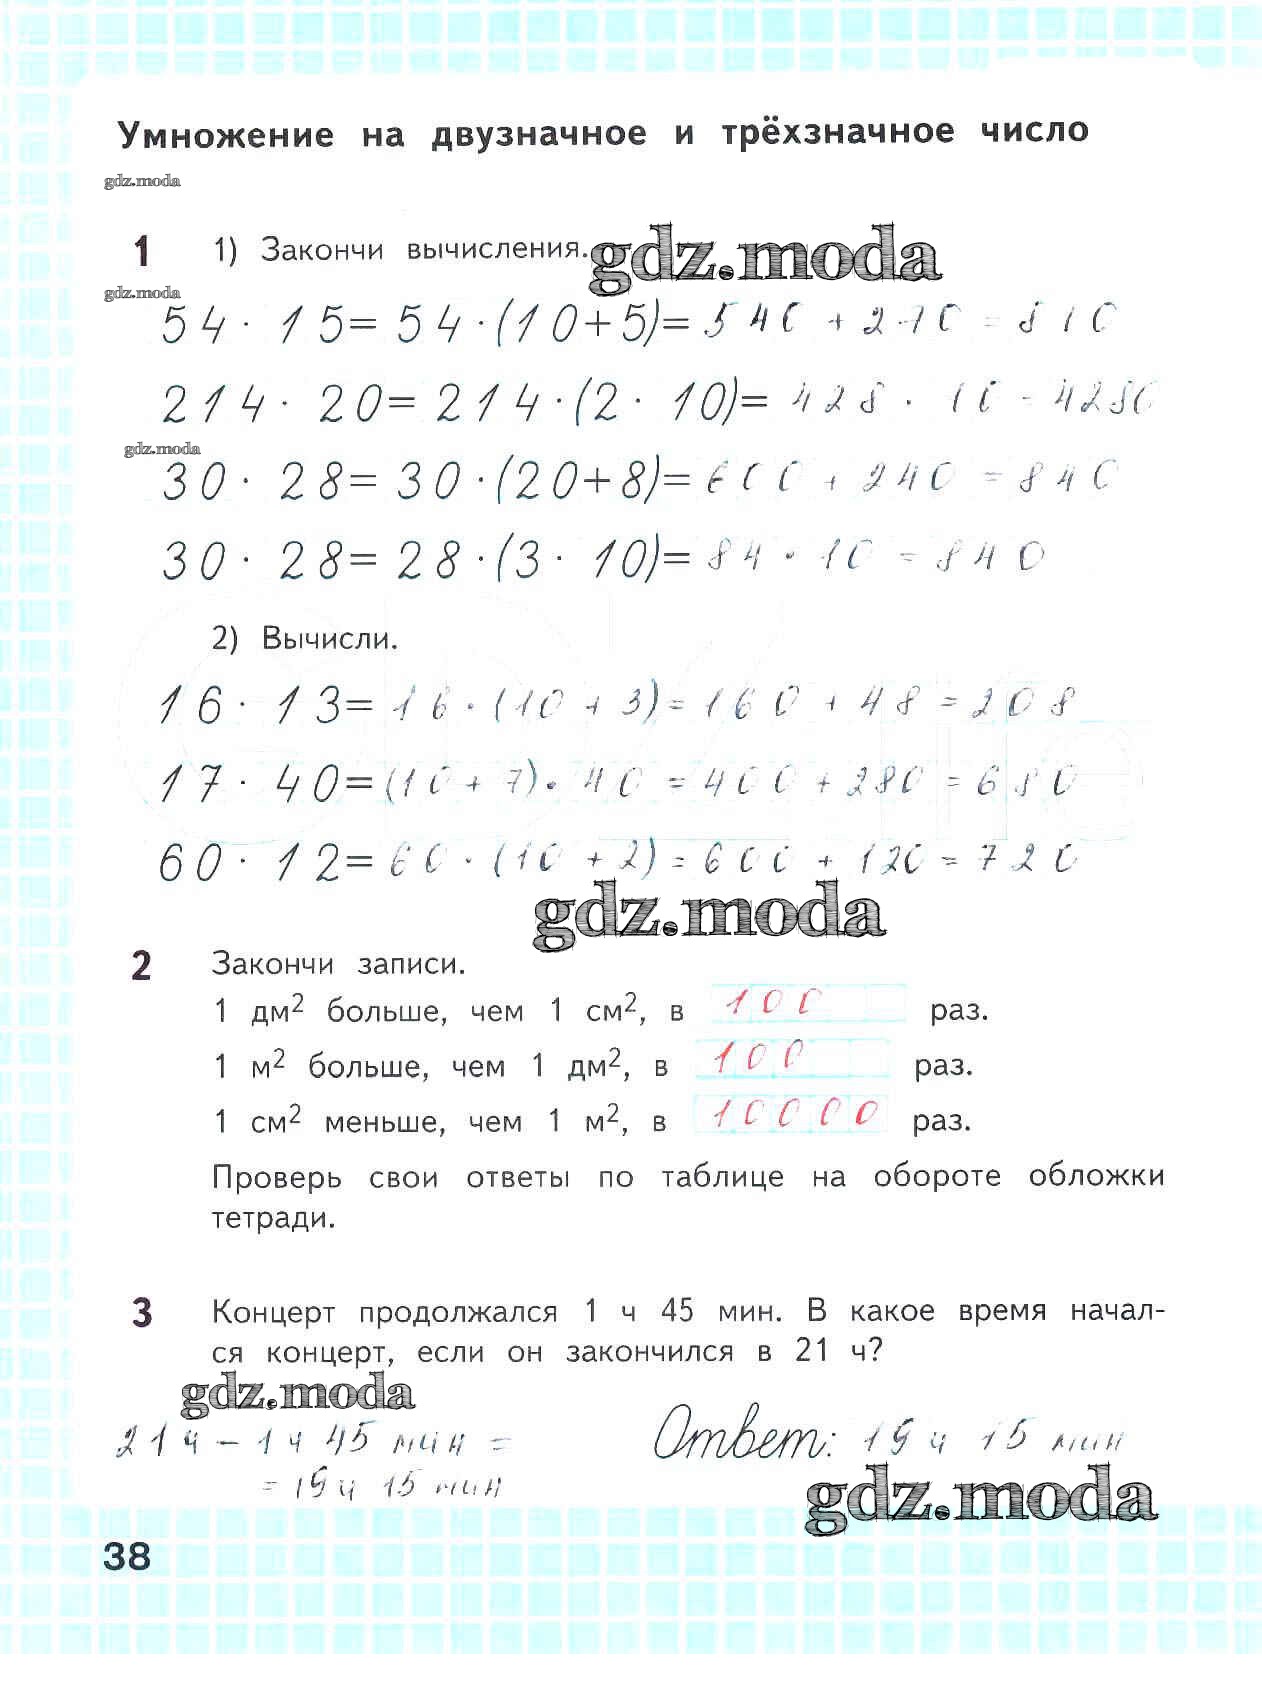 Умножение на двузначное и трёхзначное число
gdz.moda
1 1) Закончи вычисления. gdz.moda
gdz.moda
54 · 15 = 54 · (10 + 5) = 540 + 270 = 810
214 · 20 = 214 · (2 · 10) = 428 · 10 = 4280
gdz.moda
30 · 28 = 30 · (20 + 8) = 600 + 240 = 840
30 · 28 = 28 · (3 · 10) = 84 · 10 = 840
2) Вычисли.
16 · 13 = 16 · (10 + 3) = 160 + 48 = 208
17 · 40 = (10 + 7) · 40 = 400 + 280 = 680
60 · 12 = 60 · (10 + 2) = 600 + 120 = 720
gdz.moda
2 Закончи записи.
1 дм² больше, чем 1 см², в 100 раз.
1 м² больше, чем 1 дм², в 100 раз.
1 см² меньше, чем 1 м², в 10000 раз.
Проверь свои ответы по таблице на обороте обложки
тетради.
3 Концерт продолжался 1 ч 45 мин. В какое время начал-
ся концерт, если он закончился в 21 ч?
gdz.moda
21 ч – 1 ч 45 мин =
= 19 ч 15 мин
Ответ: 19 ч 15 мин
gdz.moda
38